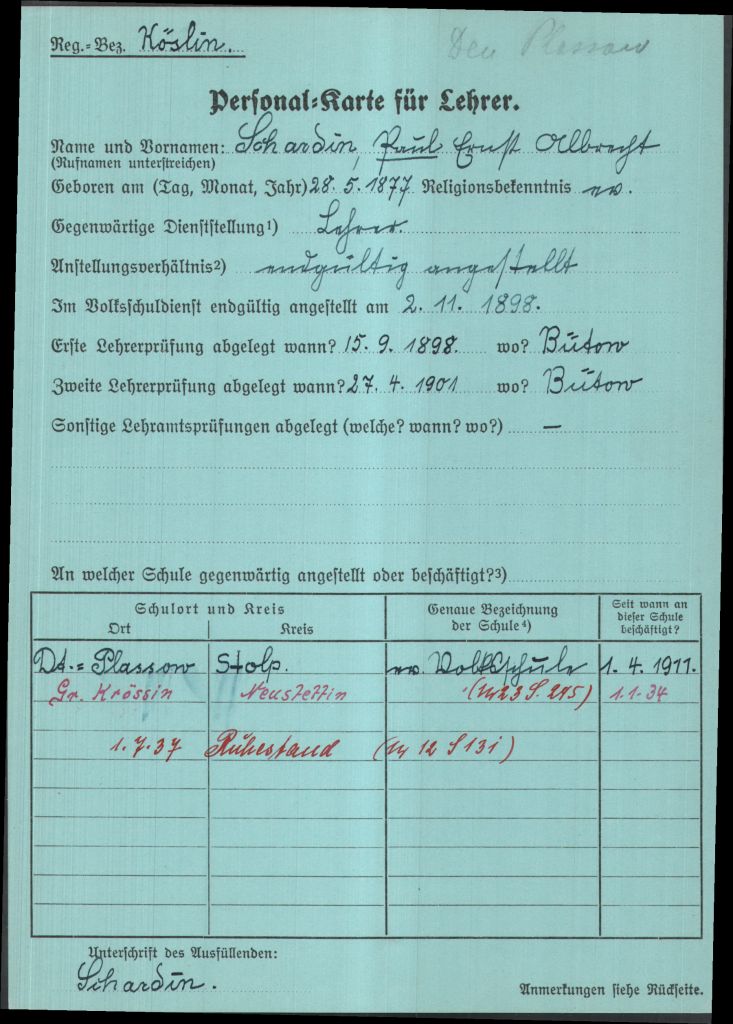 Reg.-Bez. Köslin.
Plassow
Personal-Karte für Lehrer.
Name und Vornamen: Schardin, Paul Ernst Albrecht
(Rufnamen unterstreichen)
Geboren am (Tag, Monat, Jahr) 28. 5. 1877 Religionsbekenntnis ev.
Gegenwärtige Dienststellung1) Lehrer.
Anstellungsverhältnis2) endgültig angestellt
Im Volksschuldienst endgültig angestellt am 2. 11. 1898.
Erste Lehrerprüfung abgelegt wann? 15. 9. 1898. wo? Bütow
Zweite Lehrerprüfung abgelegt wann? 27. 4. 1901 wo? Bütow
Sonstige Lehramtsprüfungen abgelegt (welche? wann? wo?) —
An welcher Schule gegenwärtig angestellt oder beschäftigt?3)
Schulort und Kreis Genaue Bezeichnung der Schule4) Seit wann an dieser Schule beschäftigt?
Ort Kreis
Dt.-Plassow Stolp. ev. Volksschule 1. 4. 1911.
Gr. Krössin Neustettin (23 S. 245) 1.1.34
1.7.37 Ruhestand (12 S 131)
Unterschrift des Ausfüllenden:
Schardin.
Anmerkungen siehe Rückseite.